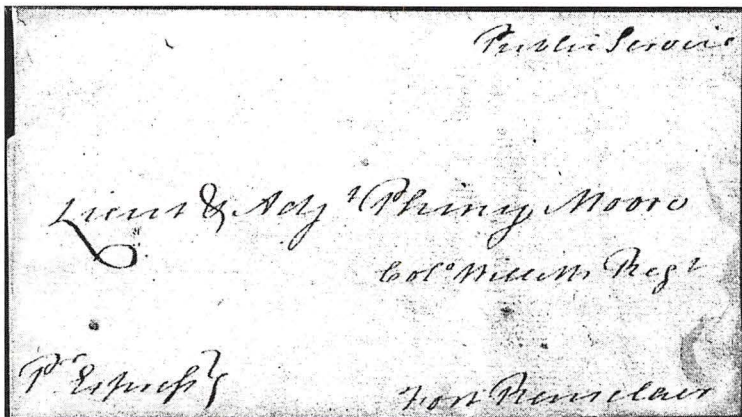 Public Service
Lieut & Adjt Pliny Moore
Colo Willetts Regt
Pr Express
Fort Renselaer